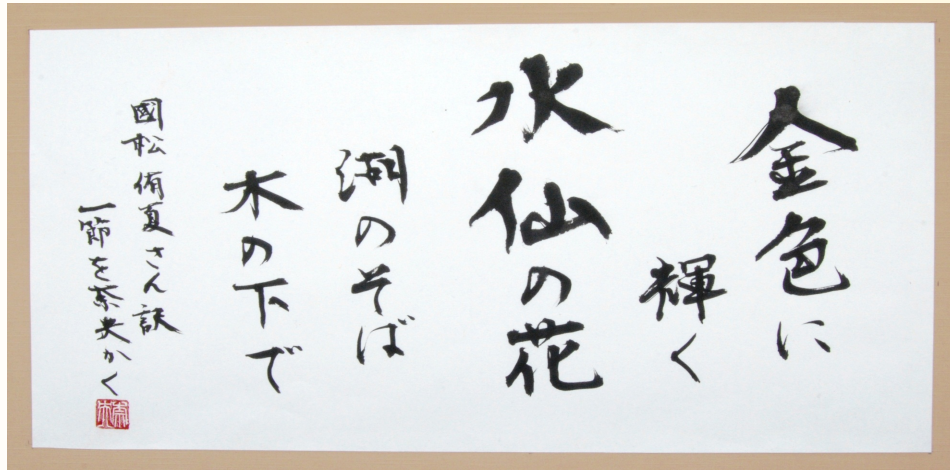 金色に
輝く
水仙の花
湖のそば
木の下で
國松侑夏さん訳
一節を奈央かく